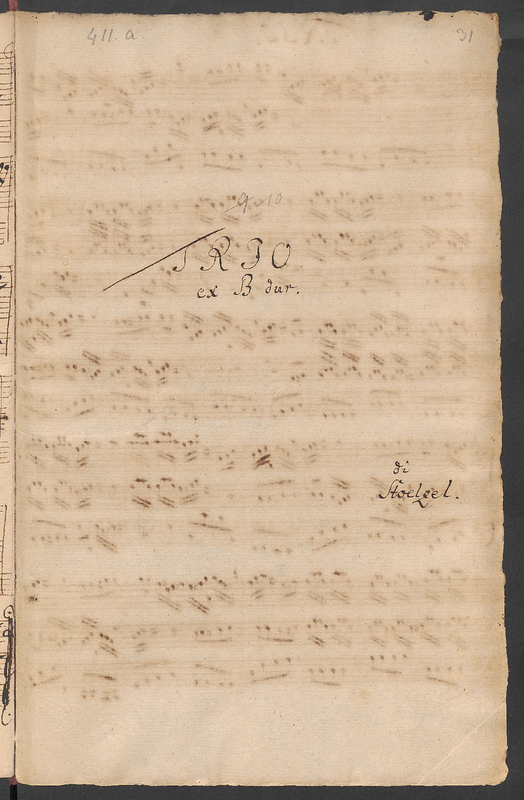 411. a
31
9. 10
TRIO
ex B dur.
di
Stoelzel.